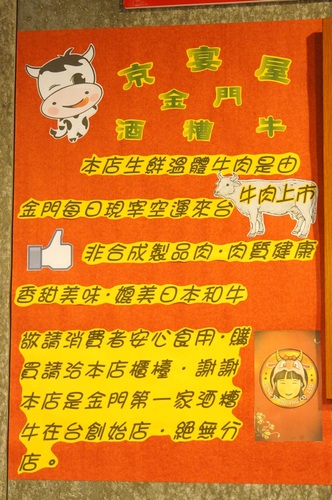 京宴屋
金門
酒糟牛
本店生鮮溫體牛肉是由
金門每日現宰空運來台
牛肉上市
非合成製品肉·肉質健康
香甜美味·媲美日本和牛
敬請消費者安心食用·購
買請洽本店櫃檯·謝謝
本店是金門第一家酒糟
牛在台創始店·絕無分
店。